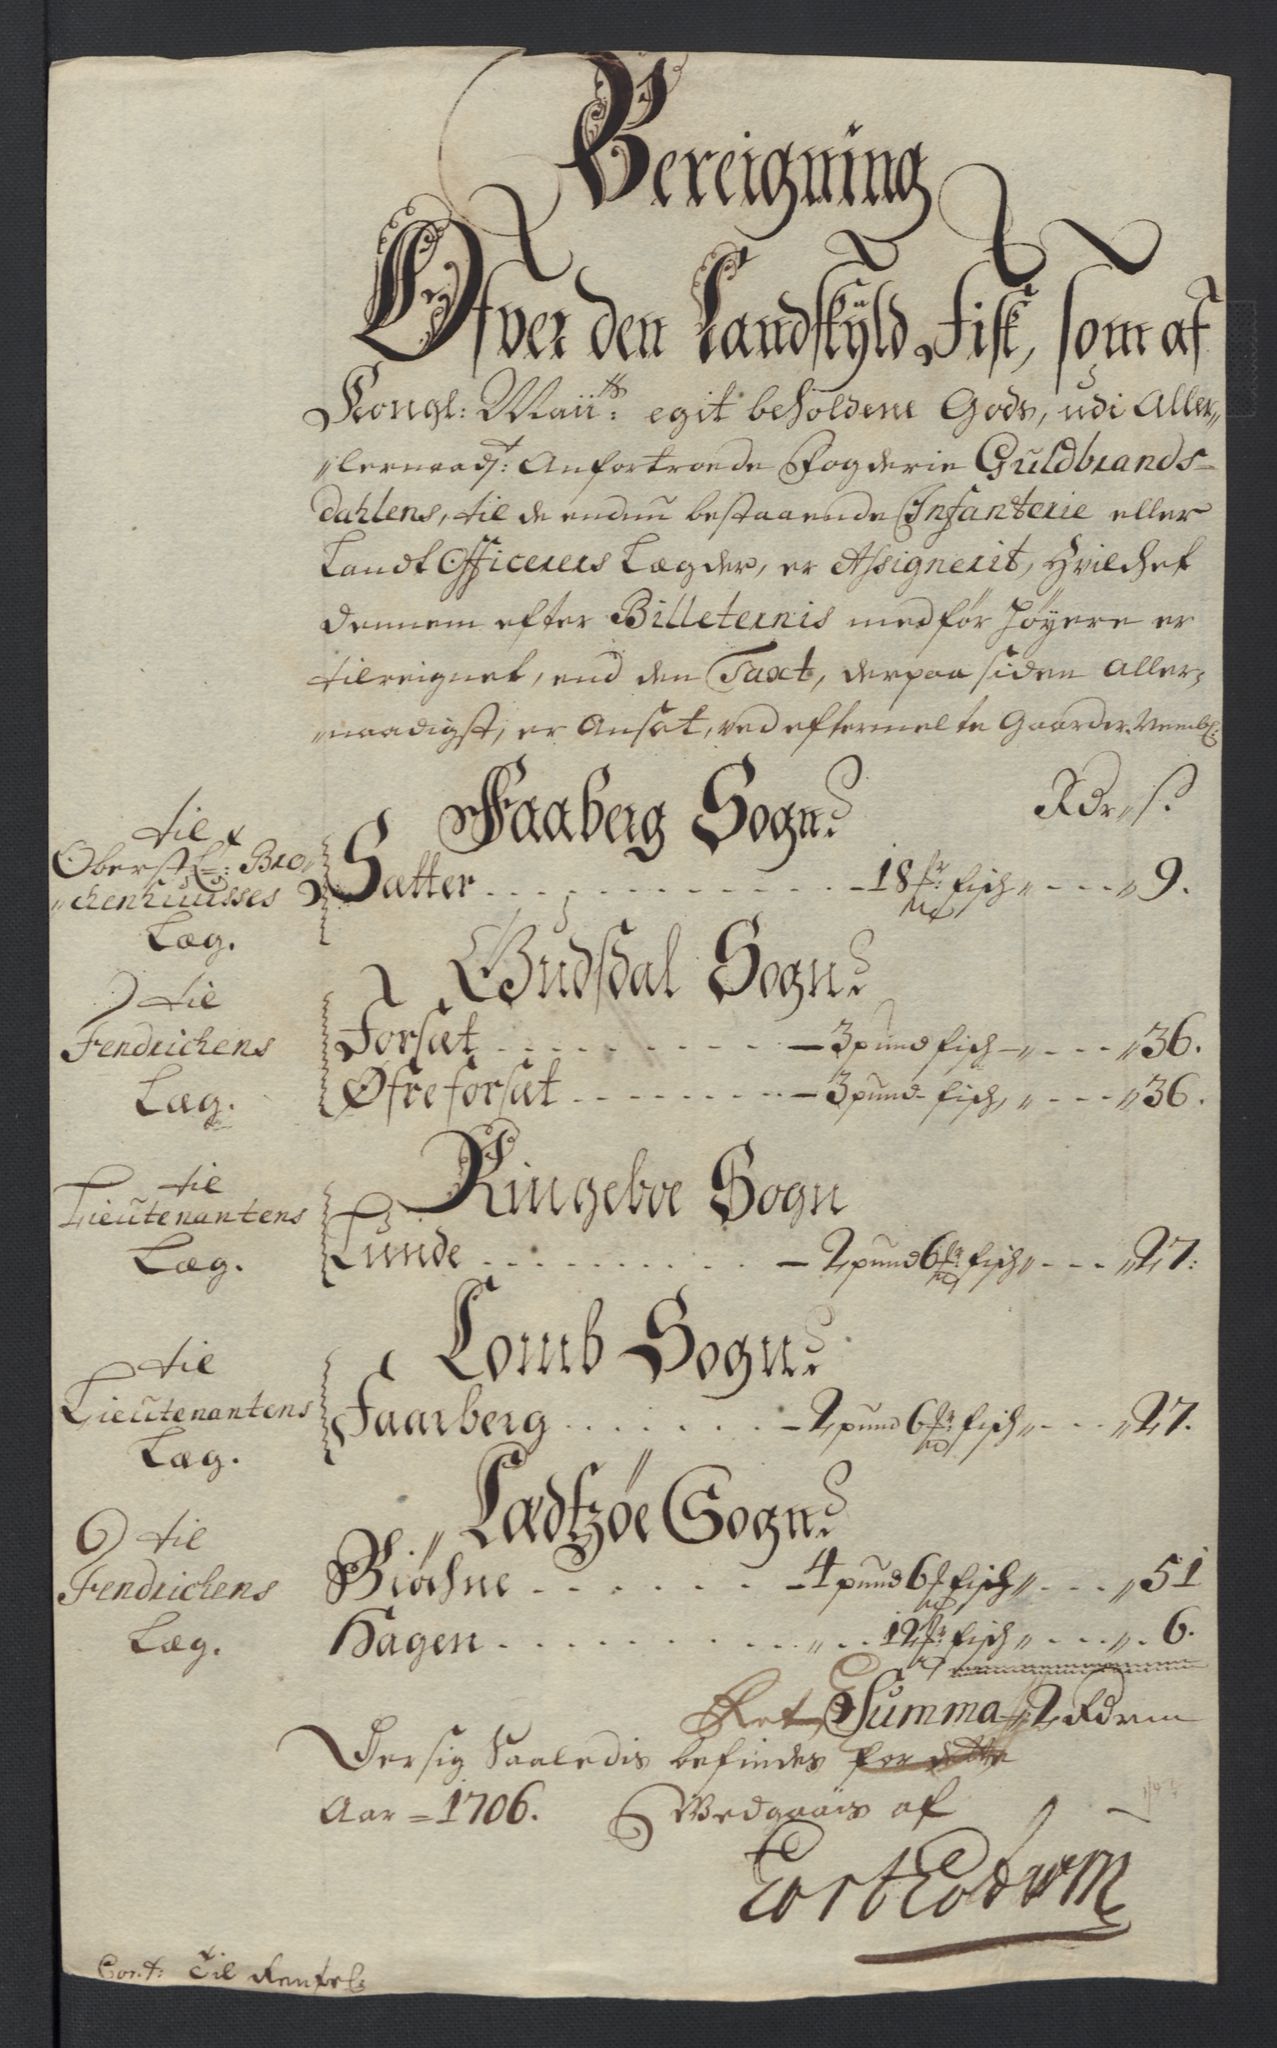 Bereigning
Ofver den Landskyld Fisk, som af
Kongl: Maiits: egit beholdene Gods, udi Aller„
„lernaadt: Anfortroede Fogderie Guldbrands-
dahlens, til de endnu bestaaende Infanterie eller
Landt Officerers Lægder, er Assignerit, Hvilchet
dennem efter Billeternis medfør høyere er
tilreignet, end den Taxt, derpaa siden aller„
„naadigst, er Ansat, ved eftermelte Gaarder. Nembl:
Rdr„ s.
Faaberg Sogn.
til
Oberst L: Bro„
„chenhuusses
Læg.
Sætter - - - 18 mr: fisch „ - - - „ 9.
Gudsdal Sogn.
til
Fendrichens
Læg.
Forsæt - - - 3 pund fisch - „ - - - „ 36.
Øfre forsæt - - - 3 pund fisch, „ - - - „ 36.
Ringeboe Sogn
til
Lieutenantens
Læg.
Lunde - - - 2 pund 6 mr: fisch „ - - - „ 27:
Lomb Sogn.
til
Lieutenantens
Læg.
Faarberg - - - 2 pund 6 mr: fisch „ - - - „ 27.
Lædtzøe Sogn.
til
Fendrichens
Læg.
Biøchne - - - 4 pund 6 mr fisch „ - - - „ 51
Hagen - - - „ - - 12 mr: fisch „ - - - „ 6.
Ret Summa - 2 Rdr
Dersig Saaledis befindes for dette
Aar = 1706. Wedgaais af
Cont: Til